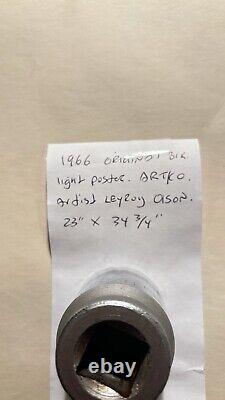 1966 ORIGINAL BLK.
light poster. ARTKO.
artist LeyRoy Olson.
23" X 34 3/4"
www.ebuem.com